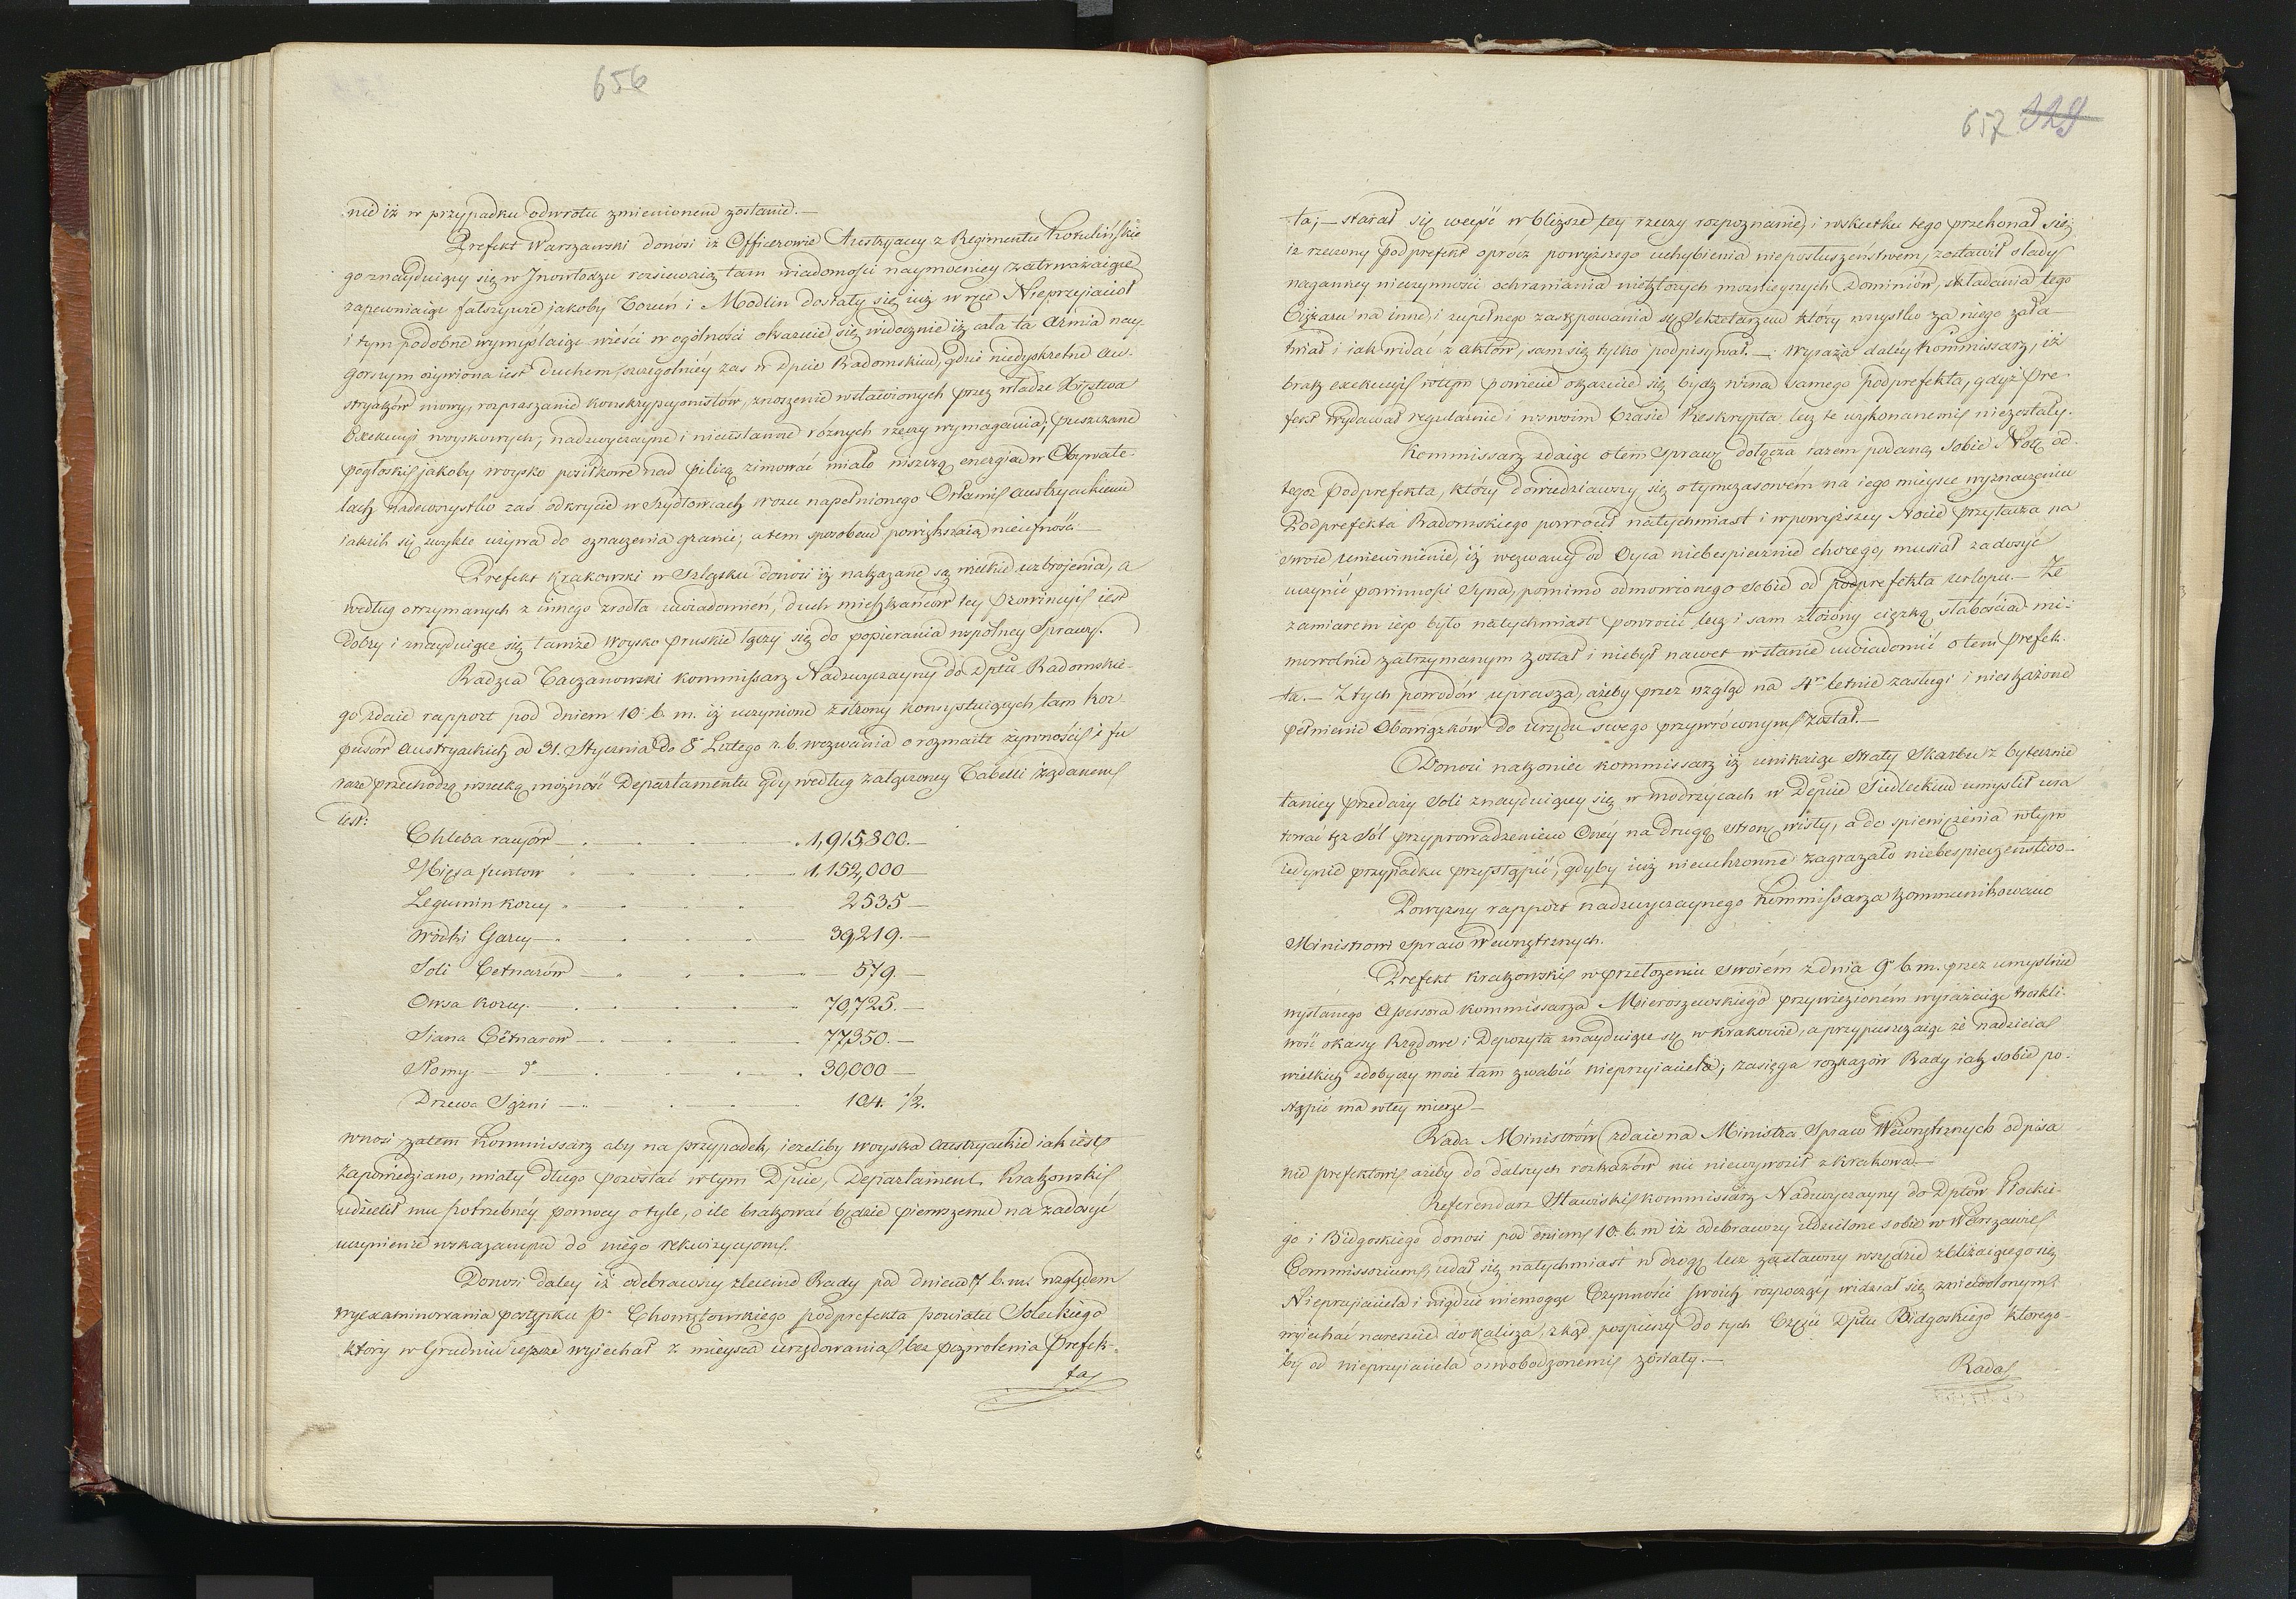 656
nie iż w przypadku odwrotu zmienionem zostanie.—
Prefekt Warszawski donosi iż Officerowie Austryaccy z Regimentu Kotulińskie
go znayduiący się w Inowłodzu rozsiewaią tam wiadomości naymocniey zatrważaiące
zapewniaiąc fałszywie jakoby Toruń i Modlin dostały się iuż w ręce Nieprzyiaciół
i tym podobne wymyślaiąc wieści w ogólności okazuie się widocznie iż cała ta Armia nay-
gorszym ożywiona iest duchem szczególniey zaś w Dpcie Radomskim, gdzie niedyskretne Au-
stryaków mowy, rozpraszanie konskrypcyonistów, znoszenie wstawionych przez władze Xięstwa
Exekucyi woyskowych, nadzwyczayne i nieustanne różnych rzeczy wymagania, puszczane
pogłoski jakoby woysko posiłkowe nad Pilicą zimować miało niszczą energią w Obywate-
lach nadewszystko zaś odkrycie w Szydłowcach wozu napełnionego Orłami Austryackiemi
iakich się zwykle używa do oznaczenia granic, a tem sposobem powiększaią nieufność.—
Prefekt Krakowski w Szląsku donosi iż nakazane są wielkie uzbroienia, a
według otrzymanych z innego źrodła uwiadomień, duch mieszkańców tey Prowincyi iest
dobry i znayduiące się tamże Woysko Pruskie łączy się do popierania wspolney Sprawy.
Radzca Taczanowski Kommissarz Nadzwyczayny do Dptu Radomskie-
go zdaie rapport pod dniem 10. b. m. iż uczynione z strony konsystuiących tam Kor-
pusów Austryackich od 31. Stycznia do 8 Lutego r. b. wezwania o rozmaite żywności i fu
raże przechodzą wszelką możność Departamentu gdy według załączoney Tabelli żądanem
iest:
Chleba racyów — 1,915,800.—
Mięsa funtow — 1,152,000—
Legumin korcy — 2535—
Wódki Garcy — 39,219.—
Soli Cetnarów — 579.—
Owsa korcy. — 70,725.—
Siana Cetnarow — 77,350.—
Słomy — do — 30,000—
Drzewa Sążni — 104. 1/2.
wnosi zatem Kommissarz aby na przypadek, ieżeliby woyska Austryackie iak iest
zapowiedziano, miały długo pozostać w tym Dpcie, Departament Krakowski
udzielił mu potrzebney pomocy o tyle, o ile brakować będzie pierwszemu na zadosyć
uczynienie wskazanym do niego rekwizycyom.
Donosi daley iż odebrawszy zlecenie Rady pod dniem 7 b. m. względem
wyexaminowania postępku Pa Chomętowskiego podprefekta powiatu Soleckiego
który w Grudniu ieszcze wyiechał z mieysca urzędowania bez pozwolenia Prefek-
ta
657 329
ta;— starał się weyść w bliższe tey rzeczy rozpoznanie, i wskutku tego przekonał się
iż rzeczony Podprefekt oprócz powyższego uchybienia nieposłuszeństwem, zostawił ślady
naganney nieczynności ochraniania niektórych możnieyszych Dominiów, składania tego
Ciężaru na inne, i zupełnego zastępowania się Sekretarzem który wszystko za niego zała-
twiał i iak widać z aktów, sam się tylko podpisywał.— Wyraża daley Kommissarz, iż
brak exekucyi w tem powiecie okazuie się bydz winą samego podprefekta, gdyż Pre-
fekt wydawał regularnie i w swoim Czasie Reskrypta lecz te wykonanemi niezostały.
Kommissarz zdaiąc o tem Sprawę dołącza razem podaną Sobie Notę od
tegoż Podprefekta, który dowiedziawszy się o tymczasowém na iego mieysce wyznaczeniu
Podprefekta Radomskiego powrocił natychmiast i w powyższey Nocie przytacza na
swoie uniewinnienie, iż wezwany od Oyca niebespiecznie chorego, musiał zadosyć
uczynić powinności Syna, pomimo odmowionego sobie od podprefekta urlopu.— Że
zamiarem iego było natychmiast powrocić lecz i sam złożony ciężką słabością mi-
mowolnie zatrzymanym został i niebył nawet w stanie uwiadomić o tem prefek-
ta.— Z tych powodów uprasza, ażeby przez wzgląd na 4ro letnie zasługi i nieskażone
pełnienie Obowiązków do urzędu swego przywróconym został.—
Donosi nakoniec Kommissarz iż unikaiąc straty Skarbu z bytecznie
taniey przedaży Soli znayduiącey się w Modrzycach w Dpcie Siedleckim umyślił ura
tować tęż Sól przyprowadzeniem Onéy na drugą stronę Wisły, a do spieniężenia w tym
iedynie przypadku przystąpić, gdyby iuż nieuchronne zagrażało niebespieczeństwo—
Powyższy rapport nadzwyczaynego Kommissarza kommunikowano
Ministrowi Spraw Wewnętrznych.
Prefekt Krakowski w przełożeniu swoiém z dnia 9o b. m. przez umyślnie
wysłanego Assessora Kommissarza Mieroszewskiego przywiezioném wyrażaiąc troskli-
wość o kassy Rządowe i Depozyta znayduiące się w Krakowie, a przypuszczaiąc że nadzieia
wielkich zdobyczy może tam zwabić nieprzyiaciela, zasięga rozkazów Rady iak sobie po-
stąpić ma w tey mierze—
Rada Ministrów zdaie na Ministra Spraw Wewnętrznych odpisa
nie prefektowi ażeby do dalszych rozkazów nic niewywoził z Krakowa.—
Referendarz Stawiski Kommissarz Nadzwyczayny do Dptów Płockie-
go i Bidgoskiego donosi pod dniem 10. b. m iż odebrawszy udzielone sobie w Warszawie
Commissorium, udał się natychmiast w drogę lecz zastawszy wszędzie zbliżaiącego się
Nieprzyiaciela i nigdzie niemogąc Czynności swoich rozpocząć, widział się zniewolonym
wyiechać nareszcie do Kalisza, z kąd pospieszy do tych Części Dptu Bidgoskiego którego-
by od nieprzyiaciela oswobodzonemi zostały.—
Rada